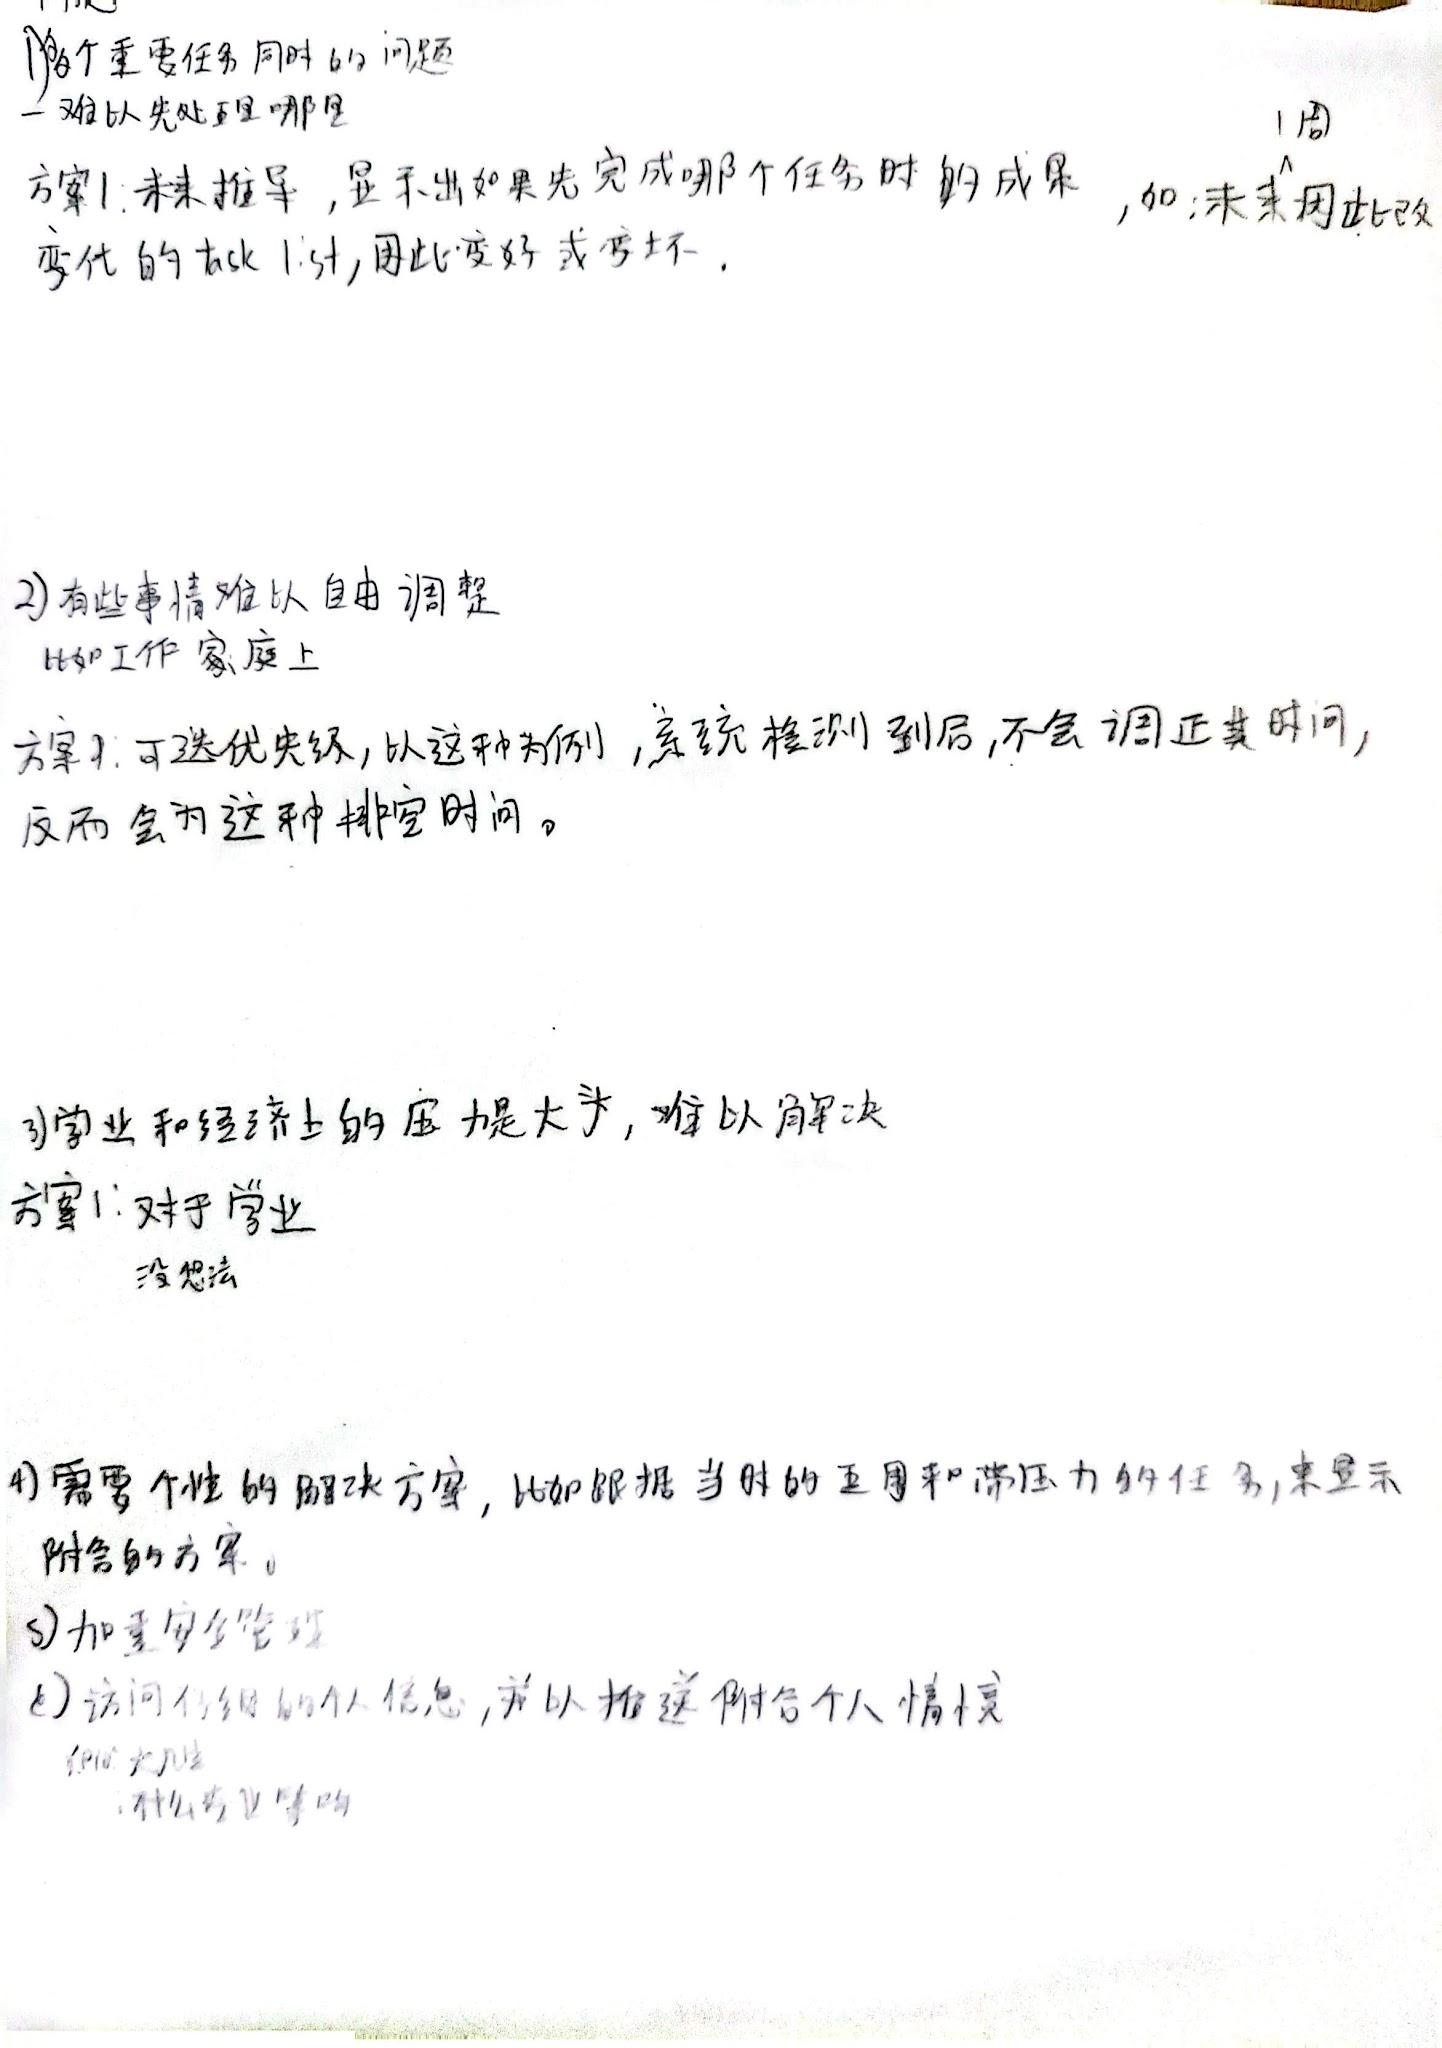 1)多个重要任务同时的问题
一难以先处理哪里
方案1:未来推导,显示出如果先完成哪个任务时的成果,如:未来1周因此改
变化的task list,因此变好或变坏.
2)有些事情难以自由调整
比如工作家庭上
方案1:可选优先级,以这种为例,系统检测到后,不会调正其时间,
反而会为这种排空时间。
3)学业和经济上的压力是大头,难以解决
方案1:对于学业
没想法
4)需要个性的解决方案,比如跟据当时的和带压力的任务,来显示
附合的方案。
5)加重安全管理
6)访问仔细的个人信息,并以推送附合个人情境
什么专业